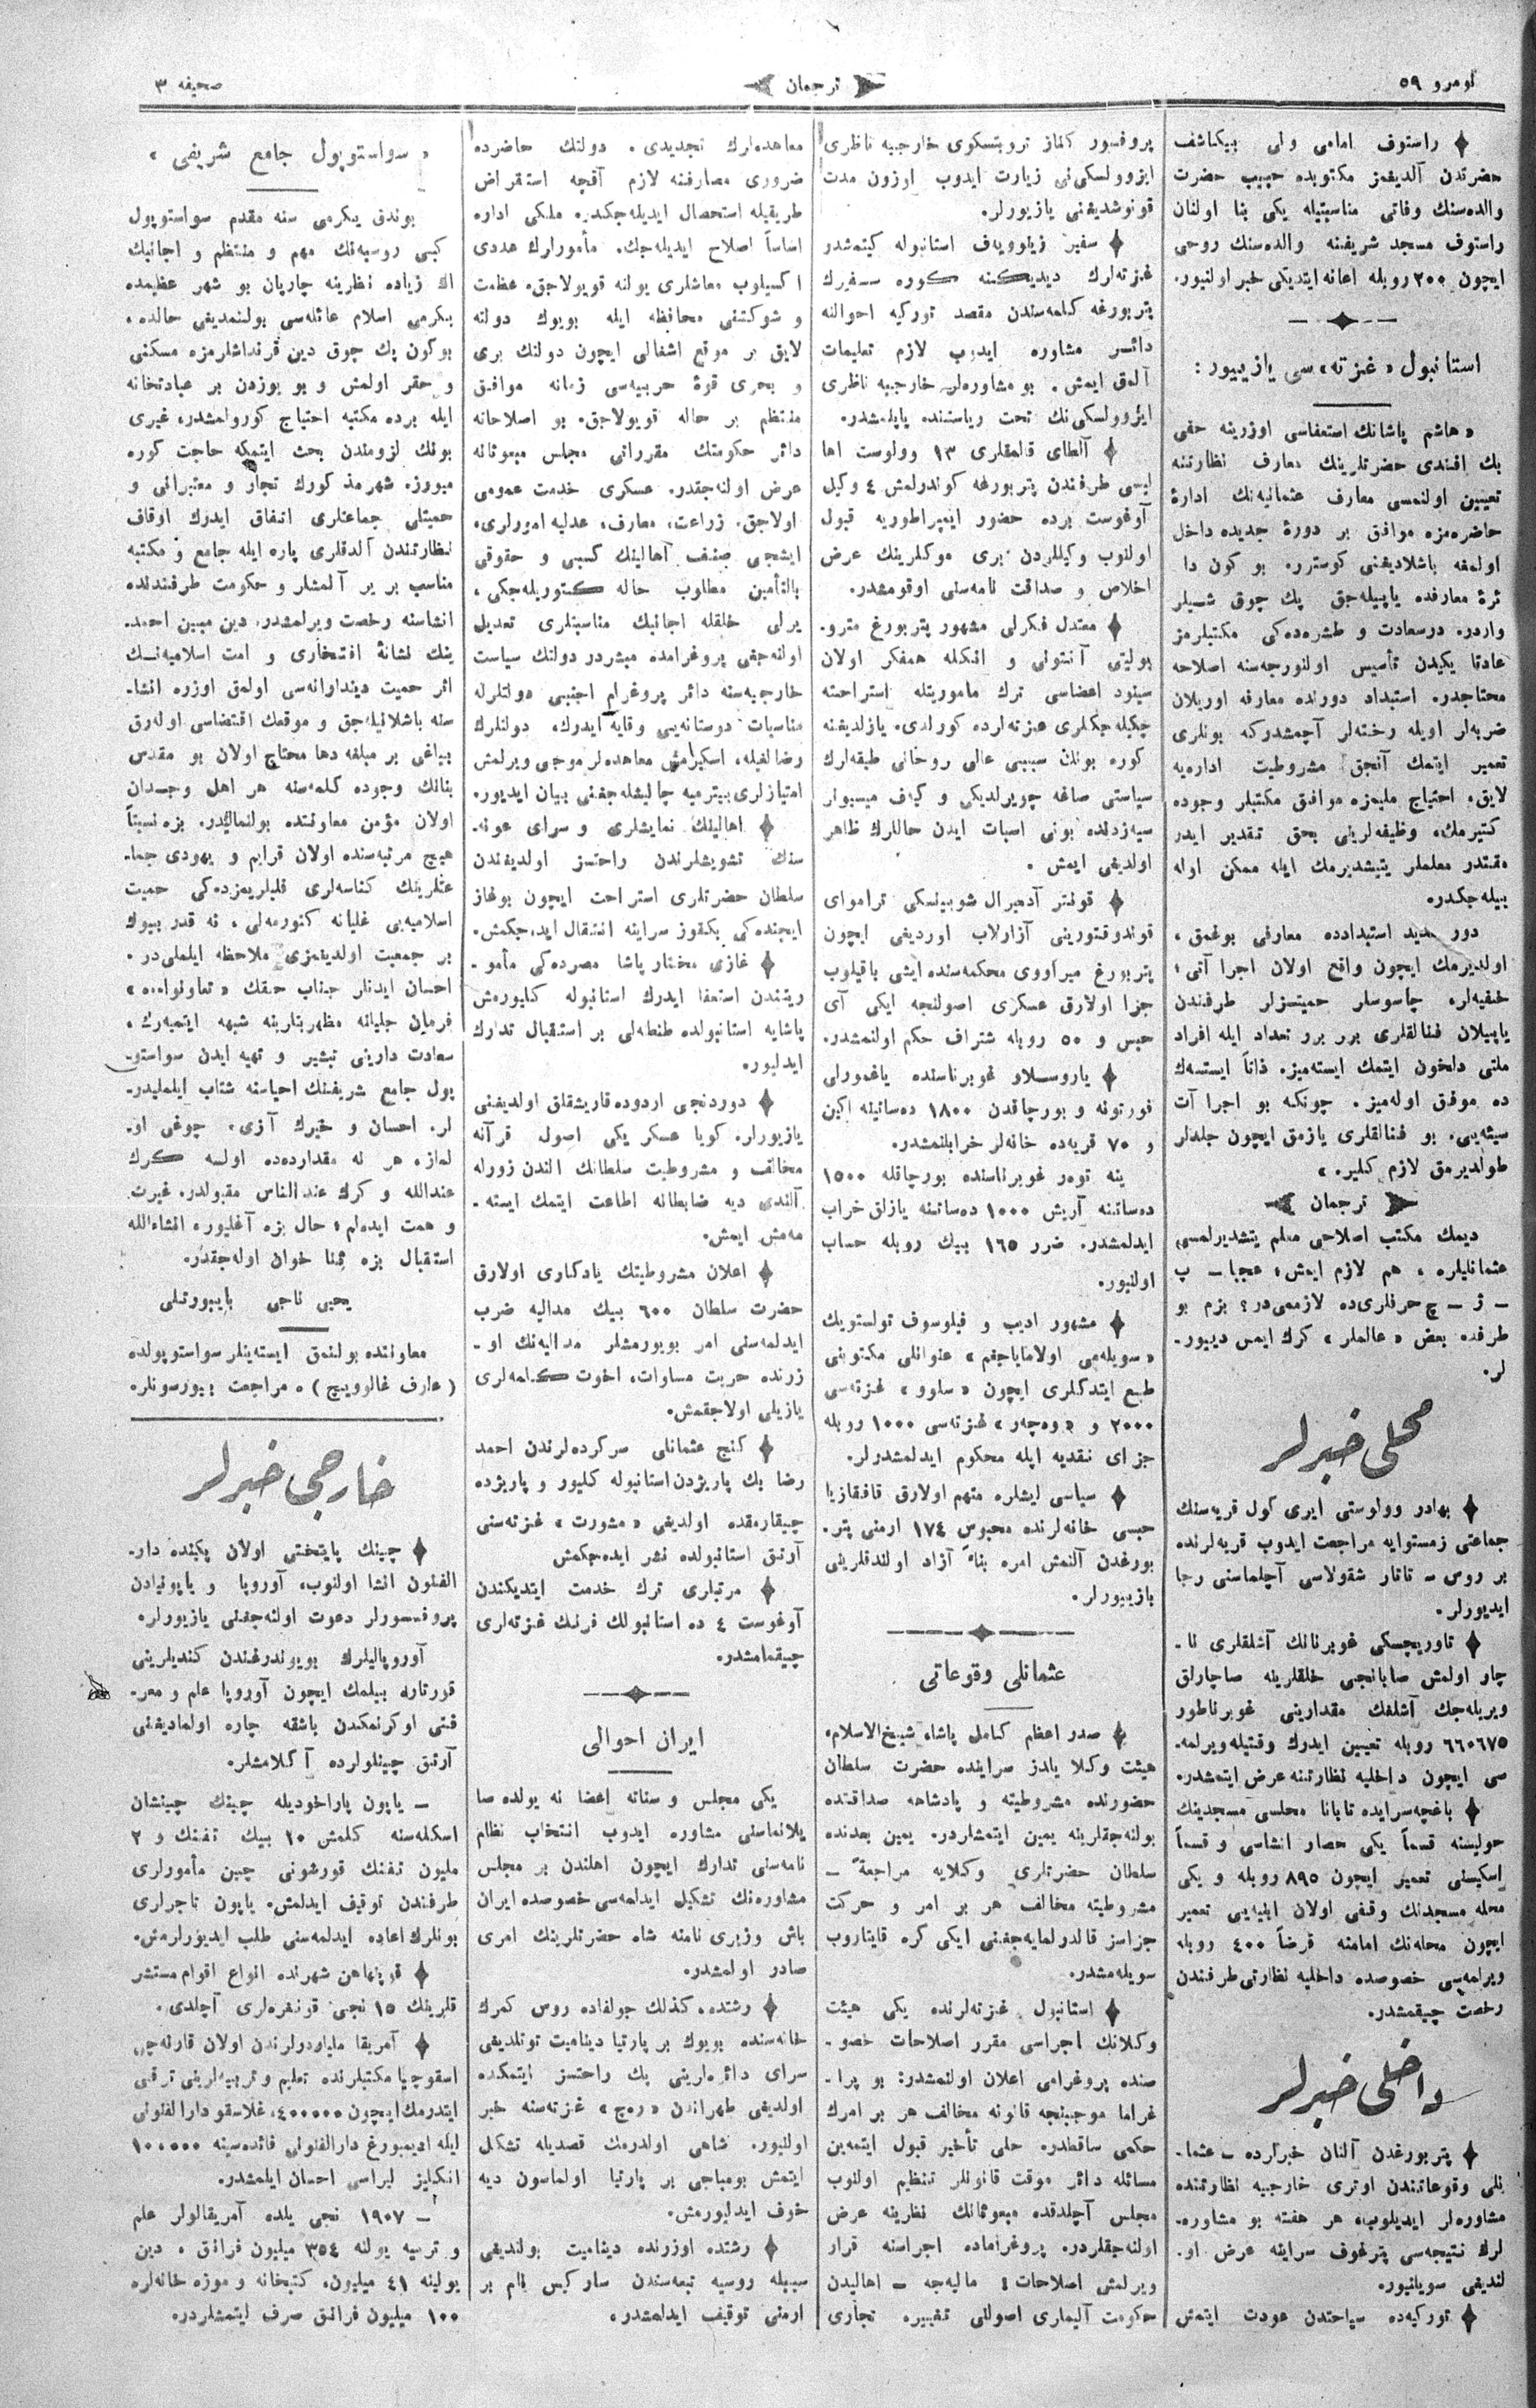 نومرو ٥٩
ترجمان
صحیفه ٣
راستوف امامی ولی بیکاشف
حضرتدن آلدیغمز مکتوبده حبیب حضرت
والده‌سنك وفاتی مناسبتیله یکی بنا اولنان
راستوف مسجد شریفنه والده‌سنك روحی
ایچون ٢٠٠ روبله اعانه ایتدیکی خبر اولنیور.
استانبول «غزته» سی یازییور:
«هاشم پاشانك استعفاسی اوزرینه حقی
بك افندی حضرتلرینك معارف نظارتنه
تعیین اولنمسی معارف عثمانیه‌نك ادارۀ
حاضره‌مزه موافق بر دورۀ جدیده داخل
اولمغه باشلادیغنی کوسترر. بو کون دا
ئرۀ معارفده یاپیله‌جق پك چوق شیلر
واردر. درسعادت و طشره‌ده‌کی مکتبلرمز
عادتا یکیدن تأسیس اولنورجه‌سنه اصلاحه
محتاجدر. استبداد دورنده معارفه اوریلان
ضربه‌لر اویله رخنه‌لر آچمشدرکه بونلری
تعمیر ایتمك آنجق مشروطیت اداره‌یه
لایق، احتیاج ملیمزه موافق مکتبلر وجوده
کتیرمك، وظیفه‌لرینی بحق تقدیر ایدر
مقتدر معلملر یتیشدیرمك ایله ممکن اوله
بیله‌جکدر.
دور مدید استبدادده معارفی بوغمق،
اولدیرمك ایچون واقع اولان اجرا آتی؛
خفیه‌لر، چاسوسلر حمیتسزلر طرفندن
یاپیلان فنالقلری برر برر تعداد ایله افراد
ملتی دلخون ایتمك ایسته‌میز. ذاتاً ایستسه‌ك
ده موفق اوله‌میز. چونکه بو اجرا آت
سیئه‌یی، بو فنالقلری یازمق ایچون جلدلر
طولدیرمق لازم کلیر.»
ترجمان
دیمك مکتب اصلاحی معلم یتشدیرلمسی
عثمانلیلره، هم لازم ایمش؛ عجبا ــ پ
ــ ژ ــ چ حرفلری‌ده لازممی‌در؟ بزم بو
طرفده بعض «عالملر» کرك ایمس دییور-
لر.
محلی خبرلر
بهادر وولوستی ایری کول قریه‌سنك
جماعتی زمستوایه مراجعت ایدوب قریه‌لرنده
بر روس ــ تاتار شقولاسی آچلماسنی رجا
ایدیورلر.
تاوریچسکی غوبرنانك آشلقلری نا-
چار اولمش صابانجی خلقلرینه صاچارلق
ویریله‌جك آشلقك مقدارینی غوبرناطور
٦٦٠٦٧٥ روبله تعیین ایدرك وقتیله ویرلمه-
سی ایچون داخلیه نظارتنه عرض ایتمشدر.
باغچه‌سرایده تابانا محلسی مسجدینك
حولیسنه قسماً یکی حصار انشاسی و قسماً
اسکیسنی تعمیر ایچون ٨٩٥ روبله و یکی
محله مسجدنك وقفی اولان ابنیه‌یی تعمیر
ایچون محله‌نك امامنه قرضاً ٤٠٠ روبله
ویرلمه‌سی خصوصده داخلیه نظارتی طرفندن
رخصت چیقمشدر.
داخلی خبرلر
پتربورغدن آلنان خبرلرده ــ عثما-
نلی وقوعاتندن اوتری خارجیه نظارتنده
مشاوره‌لر ایدیلوب، هر هفته بو مشاوره-
لرك نتیجه‌سی پترغوف سراینه عرض او-
لندیغی سویلنیور.
تورکیه‌ده سیاحتدن عودت ایتمش
پروفسور کناز تروبتسکوی خارجیه ناظری
ایزوولسکی‌نی زیارت ایدوب اوزون مدت
قونوشدیغنی یازیورلر.
سفیر زینوویف استانبوله کیتمشدر
غزته‌لرك دیدیکینه کوره سفیرك
پتربورغه کلمه‌سندن مقصد تورکیه احوالنه
دائر مشاوره ایدوب لازم تعلیمات
آلمق ایمش. بو مشاوره‌لر خارجیه ناظری
ایزوولسکی‌نك تحت ریاستنده یاپلمشدر.
آلطای قالمقلری ١٣ وولوست اها
لیسی طرفندن پتربورغه کوندرلمش ٤ وکیل
آوغوست برده حضور ایپپراطوریه قبول
اولنوب وکیللردن بری موکلرینك عرض
اخلاص و صداقت نامه‌سنی اوقومشدر.
معتدل فکرلی مشهور پتربورغ مترو-
پولیتی آنتونی و انکله همفکر اولان
سینود اعضاسی ترك ماموریتله استراحته
چکیله‌جکلری غزته‌لرده کورلدی. یازلدیغنه
کوره بونك سببی عالی روحانی طبقه‌لرك
سیاستی صاغه چویرلدیکی و کیف میسیوار
سیه‌زدنده بونی اسبات ایدن حاللرك ظاهر
اولدیغی ایمش.
قونتر آدمیرال شوبینسکی تراموای
قوندوقتورینی آزارلاب اوردیغی ایچون
پتربورغ میراووی محکمه‌سنده ایشی باقیلوب
جزا اولارق عسکری اصولنجه ایکی آی
حبس و ٥٠ روبله شتراف حکم اولنمشدر.
یاروسلاو غوبرناسنده یاغمورلی
فورتونه و بورچاقدن ١٨٠٠ ده‌ساتینه اکین
و ٧٠ قریه‌ده خانه‌لر خرابلنمشدر.
ینه توەر غوبرناسنده بورچاقله ١٥٠٠
ده‌ساتنه آریش ١٠٠٠ ده‌ساتنه یازلق خراب
ایدلمشدر. ضرر ١٦٥ بیك روبله حساب
اولنیور.
مشهور ادیب و فیلوسوف تولستویك
«سویله‌می اولامایاجغم» عنوانلی مکتوبنی
طبع ایتدکلری ایچون «سلوو» غزته‌سی
٢٠٠٠ و «وەچەر» غزته‌سی ١٠٠٠ روبله
جزای نقدیه ایله محکوم ایدلمشدرلر.
سیاسی ایشلره متهم اولارق قافقازیا
حبسی خانه‌لرنده محبوس ١٧٤ ارمنی پتر-
بورغدن آلنمش امره بناءً آزاد اولندقلرینی
یازییورلر.
عثمانلی وقوعاتی
صدر اعظم کامل پاشا، شیخ‌الاسلام،
هیئت وکلا یلدز سراینده حضرت سلطان
حضورنده مشروطیته و پادشاهه صداقتده
بولنه‌جقلرینه یمین ایتمشلردر. یمین بعدنده
سلطان حضرتلری وکلایه مراجعةً ــ
مشروطیته مخالف هر بر امر و حرکت
جزاسز قالدولمایه‌جغنی ایکی کره قایتاروب
سویله‌مشدر.
استانبول غزته‌لرنده یکی هیئت
وکلانك اجراسی مقرر اصلاحات خصو-
صنده پروغرامی اعلان اولنمشدر: بو پرا-
غراما موجبنجه قانونه مخالف هر بر امرك
حکمی ساقطدر. حلی تأخیر قبول ایتمه‌ین
مسائله دائر موقت قانونلر تنظیم اولنوب
مجلس آچلدقده مبعوثانك نظرینه عرض
اولنه‌جقلردر. پروغراماده اجراسنه قرار
ویرلمش اصلاحات: مالیه‌جه ــ اهالیدن
حکومت آلیماری اصولنی تغییره تجاری
معاهده‌لرك تجدیدی. دولتك حاضرده
ضروری مصارفنه لازم آقچه استقراض
طریقیله استحصال ایدیله‌جکدر. ملکی اداره
اساساً اصلاح ایدیله‌جك. مأمورلرك عددی
اکسیلوب معاشلری یولنه قویولاجق، عظمت
و شوکتنی محافظه ایله بویوك دولته
لایق بر موقع اشغالی ایچون دولتك بری
و بحری قوۀ حربیه‌سی زمانه موافق
منتظم بر حاله قویولاجق. بو اصلاحاته
دائر حکومتك مقرراتی مجلس مبعوثانه
عرض اولنه‌جقدر. عسکری خدمت عمومی
اولاجق. زراعت، معارف، عدلیه امورلری،
ایشجی صنف آهالینك کسبی و حقوقی
بالتأمین مطلوب حاله کتوریله‌جکی،
یرلی خلقله اجانبك مناسبتلری تعدیل
اولنه‌جغی پروغرامده مبشردر دولتك سیاست
خارجیه‌سنه دائر پروغرام اجنبی دولتلرله
مناسبات دوستانه‌یی وقایه ایدرك، دولتلرك
رضالغیله، اسکیرمش معاهده‌لر موجبی ویرلمش
امتیازلری بیترمیه چالیشله‌جغنی بیان ایدیور.
اهالینك نمایشلری و سرای عونه-
سنك تشویشلرندن راحتسز اولدیغندن
سلطان حضرتلری استراحت ایچون بوغاز
ایچنده‌کی بکقوز سراینه انتقال ایده‌جکمش.
غازی مختار پاشا مصرده‌کی مأمو-
ریتندن استعفا ایدرك استانبوله کلیورمش
پاشایه استانبولده طنطه‌لی بر استقبال تدارك
ایدلیور.
دوردنجی اردوده قاریشقلق اولدیغنی
یازیورلر. کویا عسکر یکی اصول قرآنه
مخالف و مشروطیت سلطانك الندن زورله
آلندی دیه ضابطانه اطاعت ایتمك ایسته-
مه‌مش ایمش.
اعلان مشروطیتك یادکاری اولارق
حضرت سلطان ٦٠٠ بیك مدالیه ضرب
ایدلمه‌سنی امر بویورمشلر مدالیه‌نك او-
زرنده حریت مساوات، اخوت کلمه‌لری
یازیلی اولاجقمش.
کنج عثمانلی سرکرده‌لرندن احمد
رضا بك پاریژدن استانبوله کلیور و پاریژده
چیقارمقده اولدیغی «مشورت» غزته‌سنی
آرتق استانبولده نشر ایده‌جکمش
مرتبلری ترك خدمت ایتدیکندن
آوغوست ٤ ده استانبولك فرنك غزته‌لری
چیقمامشدر.
ایران احوالی
یکی مجلس و سناته اعضا نه یولده صا
یلانماسنی مشاوره ایدوب انتخاب نظام
نامه‌سنی تدارك ایچون اهلندن بر مجلس
مشاوره‌نك تشکیل ایدلمه‌سی خصوصده ایران
باش وزیری نامنه شاه حضرتلرینك امری
صادر اولمشدر.
رشتده، کذلك جولفاده روس کمرك
خانه‌سنده بویوك بر پارتیا دینامیت توتلدیغی
سرای دائره‌لرینی پك راحتسز ایتمکده
اولدیغی طهراندن «رەچ» غزته‌سنه خبر
اولنیور. شاهی اولدرمك قصدیله تشکل
ایتمش بومباجی بر پارتیا اولماسون دیه
خوف ایدلیورمش.
رشتده اوزرنده دینامیت بولندیغی
سببله روسیه تبعه‌سندن سارکیس نام بر
ارمنی توقیف ایدلمشدر.
«سواستوپول جامع شریفی»
بوندن یکرمی سنه مقدم سواستوپول
کبی روسیه‌نك مهم و منتظم و اجانبك
اك زیاده نظرینه چارپان بو شهر عظیمده
یکرمی اسلام عائله‌سی بولنمدیغی حالده،
بوکون پك چوق دین قرنداشلرمزه مسکنی
و حقر اولمش و بو یوزدن بر عبادتخانه
ایله برده مکتبه احتیاج کورولمشدر، غیری
بونك لزومندن بحث ایتمکه حاجت کوره
میورز. شهرمذ کورك تجار و معتبرانی و
حمیتلی جماعتلری اتفاق ایدرك اوقاف
نظارتندن آلدقلری پاره ایله جامع و مکتبه
مناسب بر یر آلمشلر و حکومت طرفندنده
انشاسنه رخصت ویرلمشدر. دین مبین احمد-
ینك نشانۀ افتخاری و امت اسلامیه‌نك
اثر حمیت دیندارانه‌سی اولمق اوزره انشا-
سنه باشلانیله‌جق و موقعك اقتضاسی اوله‌رق
بیاغی بر مبلغه دها محتاج اولان بو مقدس
بنانك وجوده کلمه‌سنه هر اهل وجدان
اولان مؤمن معاونتده بولنمالیدر. بزه نسبتاً
هیچ مرتبه‌سنده اولان قرایم و یهودی جما-
عتلرینك کناسه‌لری قلبلریمزده‌کی حمیت
اسلامیه‌یی غلیانه کتورمه‌لی، نه قدر بیوك
بر جمعیت اولدیغمزی ملاحظه ایلملی‌در.
احسان ایدنلر جناب حقك «تعاونوا...»
فرمان جلیانه مظهریتلرینه شبهه ایتمیه‌رك،
سعادت دارینی تبشیر و تهیه ایدن سواستو-
پول جامع شریفنك احیاسنه شتاب ایلملیدر-
لر. احسان و خیرك آزی، چوغی او-
لماز. هر نه مقدارده‌ده اولسه کرك
عندالله و کرك عندالناس مقبولدر. غیرت
و همت ایده‌لم؛ حال بزه آغلیور، انشاءالله
استقبال بزه ثمنا خوان اوله‌جقدر.
یحیی ناجی بایبورتلی
معاونتده بولنمق ایسته‌ینلر سواستوپولده
(عارف غالوویچ)ه مراجعت بیورسونلر.
خارجی خبرلر
چینك پایتختی اولان پکینده دار-
الفنون انشا اولنوب، آوروپا و یاپونیادن
پروفسورلر دعوت اولنه‌جغنی یازیورلر.
آوروپالیلرك بویوندرغندن کندیلرینی
قورتاره بیلمك ایچون آوروپا علم و معر-
فتنی اوکرنمکدن باشقه چاره اولمادیغنی
آرتق چینلولرده آکلامشلر.
ــ یاپون پاراخودیله چینك چینشان
اسکله‌سنه کلمش ١٠ بیك تفنك و ٢
ملیون تفنك قورشونی چین مأمورلری
طرفندن توقیف ایدلمش. یاپون تاجرلری
بونلرك اعاده ایدلمه‌سنی طلب ایدیورلرمش.
قوپنهاهن شهرنده انواع اقوام مستشر
قلرینك ١٥ نجی قونفره‌لری آچلدی.
آمریقا ملیاردولرندن اولان قارنه‌جی
اسقوچیا مکتبلرنده تعلیم و تربیه‌لرینی ترقی
ایتدرمك ایچون ٤٠٠٠٠٠، غلاسقو دارالفنونی
ایله ادیمبورغ دارالفنونی فائده‌سینه ١٠٠٠٠٠
انکلیز لیراسی احسان ایلمشدر.
ــ ١٩٠٧ نجی یلده آمریقالولر علم
و تربیه یولنه ٣٥٤ میلیون فرانق، دین
یولینه ٤١ میلیون، کتبخانه و موزه خانه‌لره
١٠٠ میلیون فرانق صرف ایتمشلردر.